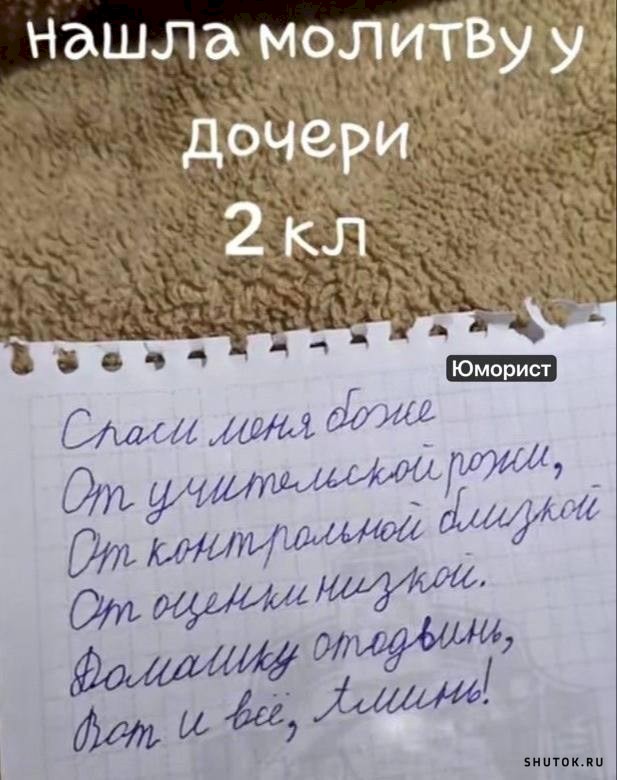 нашла молитву у
дочери
2 кл
Юморист
Спаси меня боже
От учительской рожи,
От контрольной близкой
От оценки низкой.
Домашку отодвинь,
Вот и всё, Аминь!
SHUTOK.RU